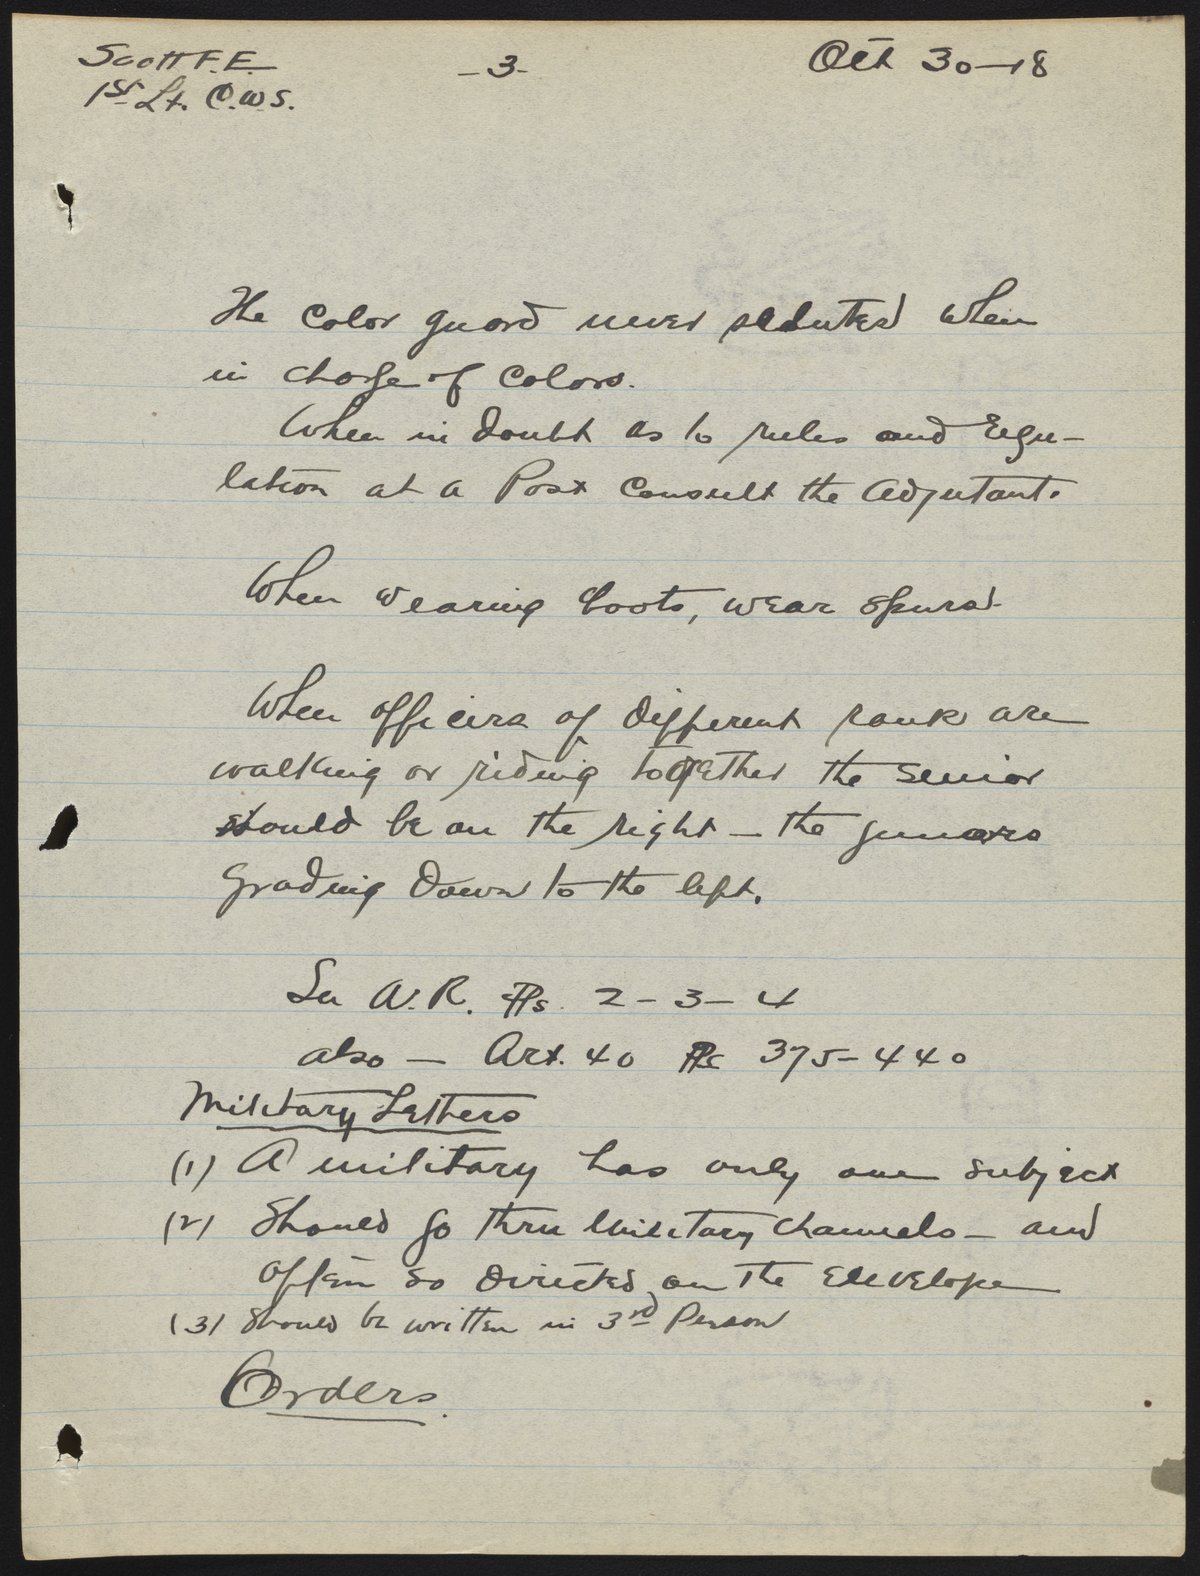 Scott F.E. -3- Oct 30-18
1st Lt. C.W.S.
The color guard never saluted when
in charge of colors.
When in doubt as to rules and regu-
lation at a Post consult the adjutant.
When wearing boots, wear spurs.
When officers of different rank are
walking or riding together the senior
should be on the right - the juniors
grading down to the left.
See A.R. Ps. 2-3-4
also - Art. 40 Ps 375-440
Military Letters
(1) A military has only one subject
(2) Should go thru military channels - and
often so directed on the envelope
(3) Should be written in 3rd Person
Orders.